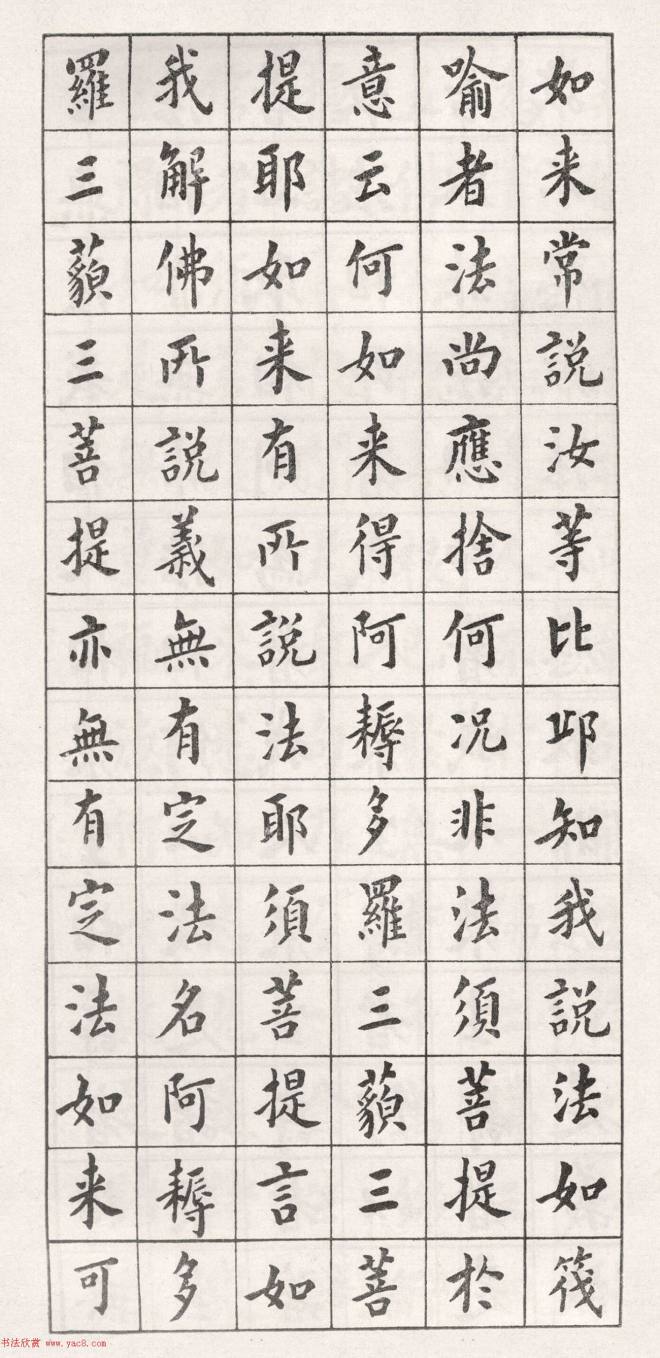 如来常説汝等比邱知我説法如筏
喻者法尚應捨何况非法須菩提於
意云何如来得阿耨多羅三藐三菩
提耶如来有所説法耶須菩提言如
我解佛所説義無有定法名阿耨多
羅三藐三菩提亦無有定法如来可
书法欣赏 www.yac8.com